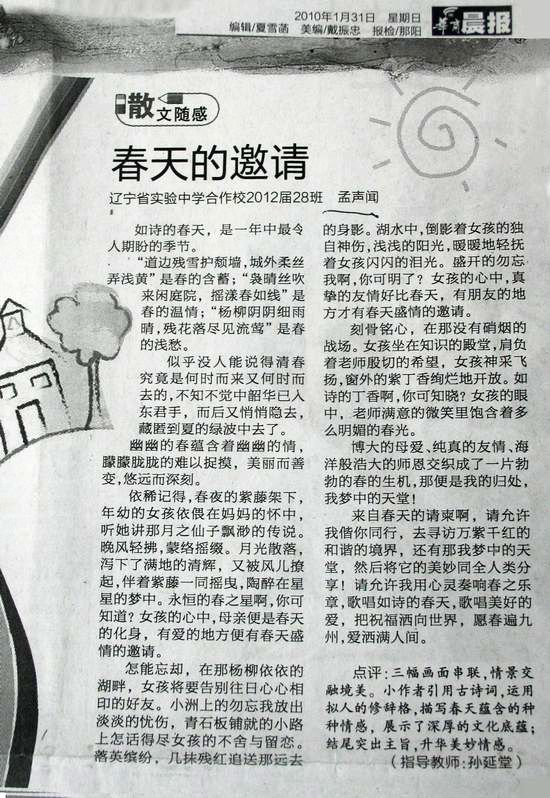 2010年1月31日 星期日
编辑/夏雪菡 美编/戴振忠 报检/那阳
华商晨报
散文随感
春天的邀请
辽宁省实验中学合作校2012届28班 孟声闻
如诗的春天，是一年中最令
人期盼的季节。
“道边残雪护颓墙，城外柔丝
弄浅黄”是春的含蓄；“袅晴丝吹
来闲庭院，摇漾春如线”是
春的温情；“杨柳阴阴细雨
晴，残花落尽见流莺”是春
的浅愁。
似乎没人能说得清春
究竟是何时而来又何时而
去的，不知不觉中韶华已入
东君手，而后又悄悄隐去，
藏匿到夏的绿波中去了。
幽幽的春蕴含着幽幽的情，
朦朦胧胧的难以捉摸，美丽而善
变，悠远而深刻。
依稀记得，春夜的紫藤架下，
年幼的女孩依偎在妈妈的怀中，
听她讲那月之仙子飘渺的传说。
晚风轻拂，蒙络摇缀。月光散落，
泻下了满地的清辉，又被风儿撩
起，伴着紫藤一同摇曳，陶醉在星
星的梦中。永恒的春之星啊，你可
知道？女孩的心中，母亲便是春天
的化身，有爱的地方便有春天盛
情的邀请。
怎能忘却，在那杨柳依依的
湖畔，女孩将要告别往日心心相
印的好友。小洲上的勿忘我放出
淡淡的忧伤，青石板铺就的小路
上怎话得尽女孩的不舍与留恋。
落英缤纷，几抹残红追送那远去
的身影。湖水中，倒影着女孩的独
自神伤，浅浅的阳光，暖暖地轻抚
着女孩闪闪的泪光。盛开的勿忘
我啊，你可明了？女孩的心中，真
挚的友情好比春天，有朋友的地
方才有春天盛情的邀请。
刻骨铭心，在那没有硝烟的
战场。女孩坐在知识的殿堂，肩负
着老师殷切的希望，女孩神采飞
扬，窗外的紫丁香绚烂地开放。如
诗的丁香啊，你可知晓？女孩的眼
中，老师满意的微笑里饱含着多
么明媚的春光。
博大的母爱、纯真的友情、海
洋般浩大的师恩交织成了一片勃
勃的春的生机，那便是我的归处，
我梦中的天堂！
来自春天的请柬啊，请允许
我偕你同行，去寻访万紫千红的
和谐的境界，还有那我梦中的天
堂，然后将它的美妙同全人类分
享！请允许我用心灵奏响春之乐
章，歌唱如诗的春天，歌唱美好的
爱，把祝福洒向世界，愿春遍九
州，爱洒满人间。
点评：三幅画面串联，情景交
融境美。小作者引用古诗词，运用
拟人的修辞格，描写春天蕴含的种
种情感，展示了深厚的文化底蕴；
结尾突出主旨，升华美妙情感。
（指导教师：孙延堂）